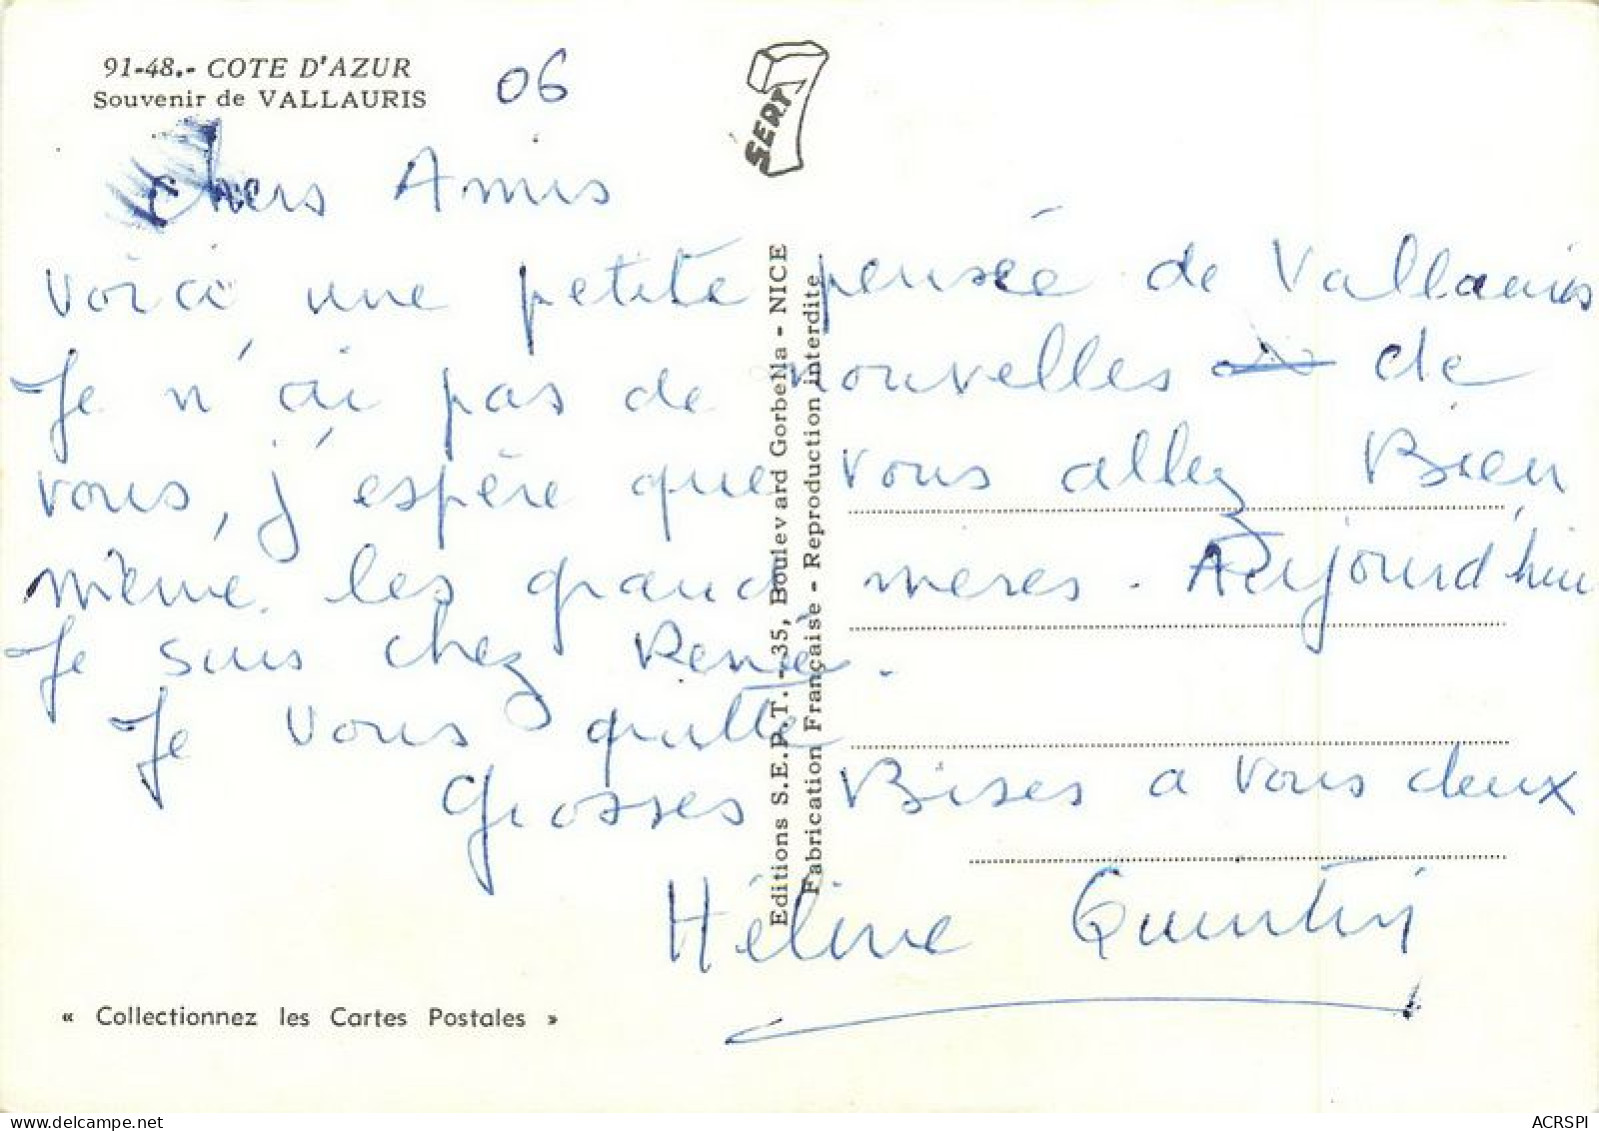 91-48.- COTE D'AZUR
Souvenir de VALLAURIS
06
SEPT
chers Amis
Voici une petite pensée de Vallauris
Je n'ai pas de nouvelles de
vous, j'espère que vous allez Bien
même les grand mères. Aujourd'hui
Je suis chez Renée.
Je vous quitte
Grosses Bises a vous deux
Héline Quintin
Editions S.E.P.T. - 35, Boulevard Gorbella - NICE
Fabrication Française - Reproduction interdite
« Collectionnez les Cartes Postales »
ACRSPI